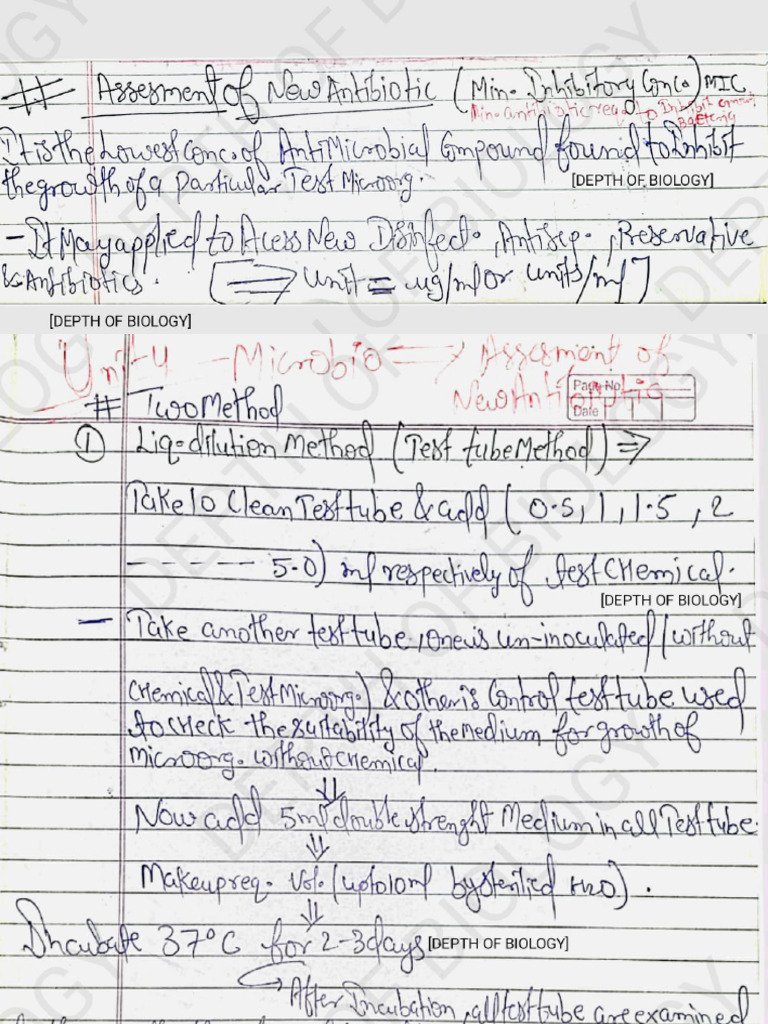 # Assesment of New Antibiotic (Min. Inhibitory Conc.) MIC
Min. antibiotic req. to Inhibit growth
Bacteria
It is the Lowest Conc. of AntiMicrobial Compound found to Inhibit
the growth of a Particular Test Microorg.
[DEPTH OF BIOLOGY]
- It May applied to Acess New Disinfect. , Antisep. , Preservative
& Antibiotics. [⇒ Unit = ug/ml or units/ml]
[DEPTH OF BIOLOGY]
Unit-4 - Microbio ⇒ Assesment of
New Antibiotic
Page No.
Date
# Two Method
① Liq. dilution Method (Test tube Method) ⇒
Take 10 Clean Test tube & add (0.5, 1, 1.5, 2
------ 5.0) ml respectively of test Chemical.
[DEPTH OF BIOLOGY]
- Take another test tube, one is un-inoculated (without
Chemical & Test Microorg.) & other is Control test tube used
to check the suitability of the Medium for growth of
microorg. without chemical.
⇓
Now add 5ml double strenght Medium in all Test tube.
⇓
Make up req. Vol. (upto 10ml by sterilied H2O).
⇓
Incubate 37°C for 2-3 days
[DEPTH OF BIOLOGY]
→ After Incubation, all test tube are examined
DEPTH OF BIOLOGY